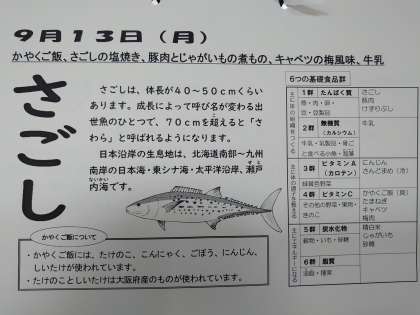 9月13日（月）
かやくご飯、さごしの塩焼き、豚肉とじゃがいもの煮もの、キャベツの梅風味、牛乳
さごし
さごしは、体長が40～50cmくらい
あります。成長によって呼び名が変わる出
世魚のひとつで、70cmを超えると「さ
わら」と呼ばれるようになります。
日本沿岸の生息地は、北海道南部～九州
南岸の日本海・東シナ海・太平洋沿岸、瀬戸
内海です。
かやくご飯について
・かやくご飯には、たけのこ、こんにゃく、ごぼう、にんじん、
しいたけが使われています。
・たけのことしいたけは大阪府産のものが使われています。
6つの基礎食品群
1群 たんぱく質
魚・肉・卵・
豆・豆製品
さごし
豚肉
けずりぶし
2群 無機質
（カルシウム）
牛乳・乳製品・骨ご
と食べる小魚・海藻
牛乳
3群 ビタミンA
（カロテン）
緑黄色野菜
にんじん
さんどまめ（冷）
4群 ビタミンC
その他の野菜・果物・
きのこ
かやくご飯（具）
たまねぎ
キャベツ
梅肉
5群 炭水化物
穀物・いも・砂糖
精白米
じゃがいも
砂糖
6群 脂質
油脂・種実